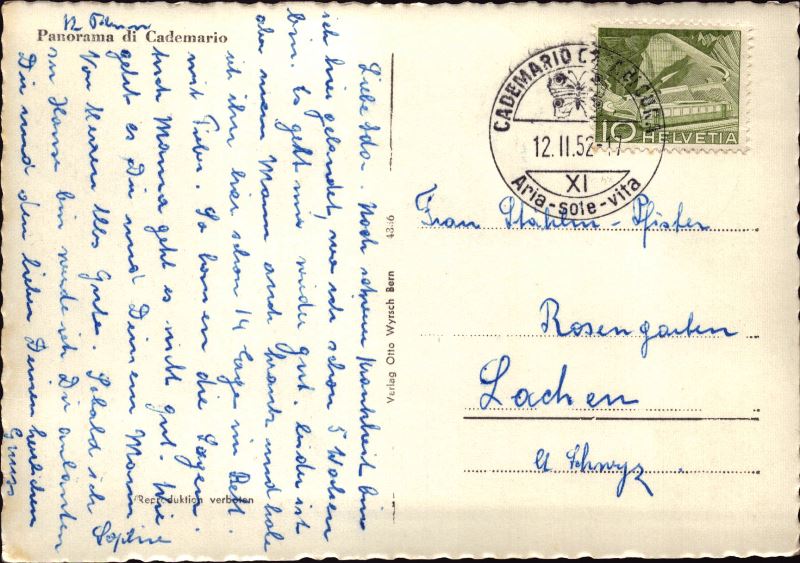 12 Februar
Panorama di Cademario
Liebe Ida. Nach schwerer Krankheit bin
ich hier gelandet, wo ich schon 5 Wochen
bin. Es geht mir wieder gut. Leider ist
aber mein Mann auch krank und habe
ich ihn hier schon 14 Tage im Bett
mit Fieber. So kommen die Sagen.
Manna geht es nicht gut. Wie
geht es Dir und Deinem Mann
Von Herzen Alles Gute. Sobald ich
zu Hause bin werde ich Dir anläuten
Dir und den lieben Deinen herzlichen
Gruss
Sophie
Reproduktion verboten
Verlag Otto Wyrsch Bern 4346
CADEMARIO
12.II.52-17
XI
Aria-sole-vita
10 HELVETIA
Frau Stählin-Pfister
Rosengarten
Lachen
Kt. Schwyz